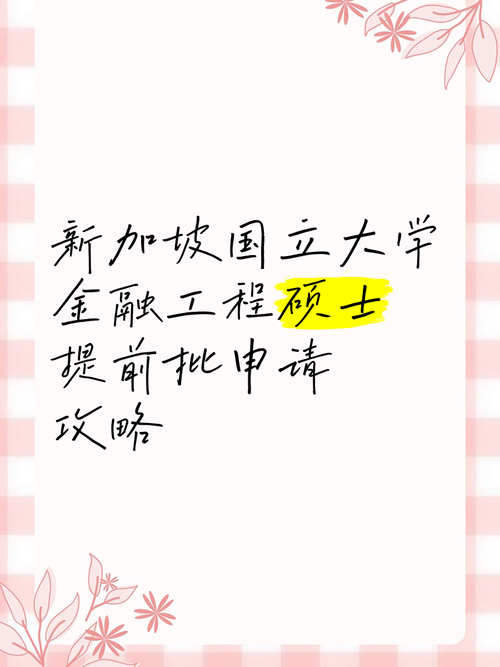 新加坡国立大学
金融工程硕士
提前批申请
攻略